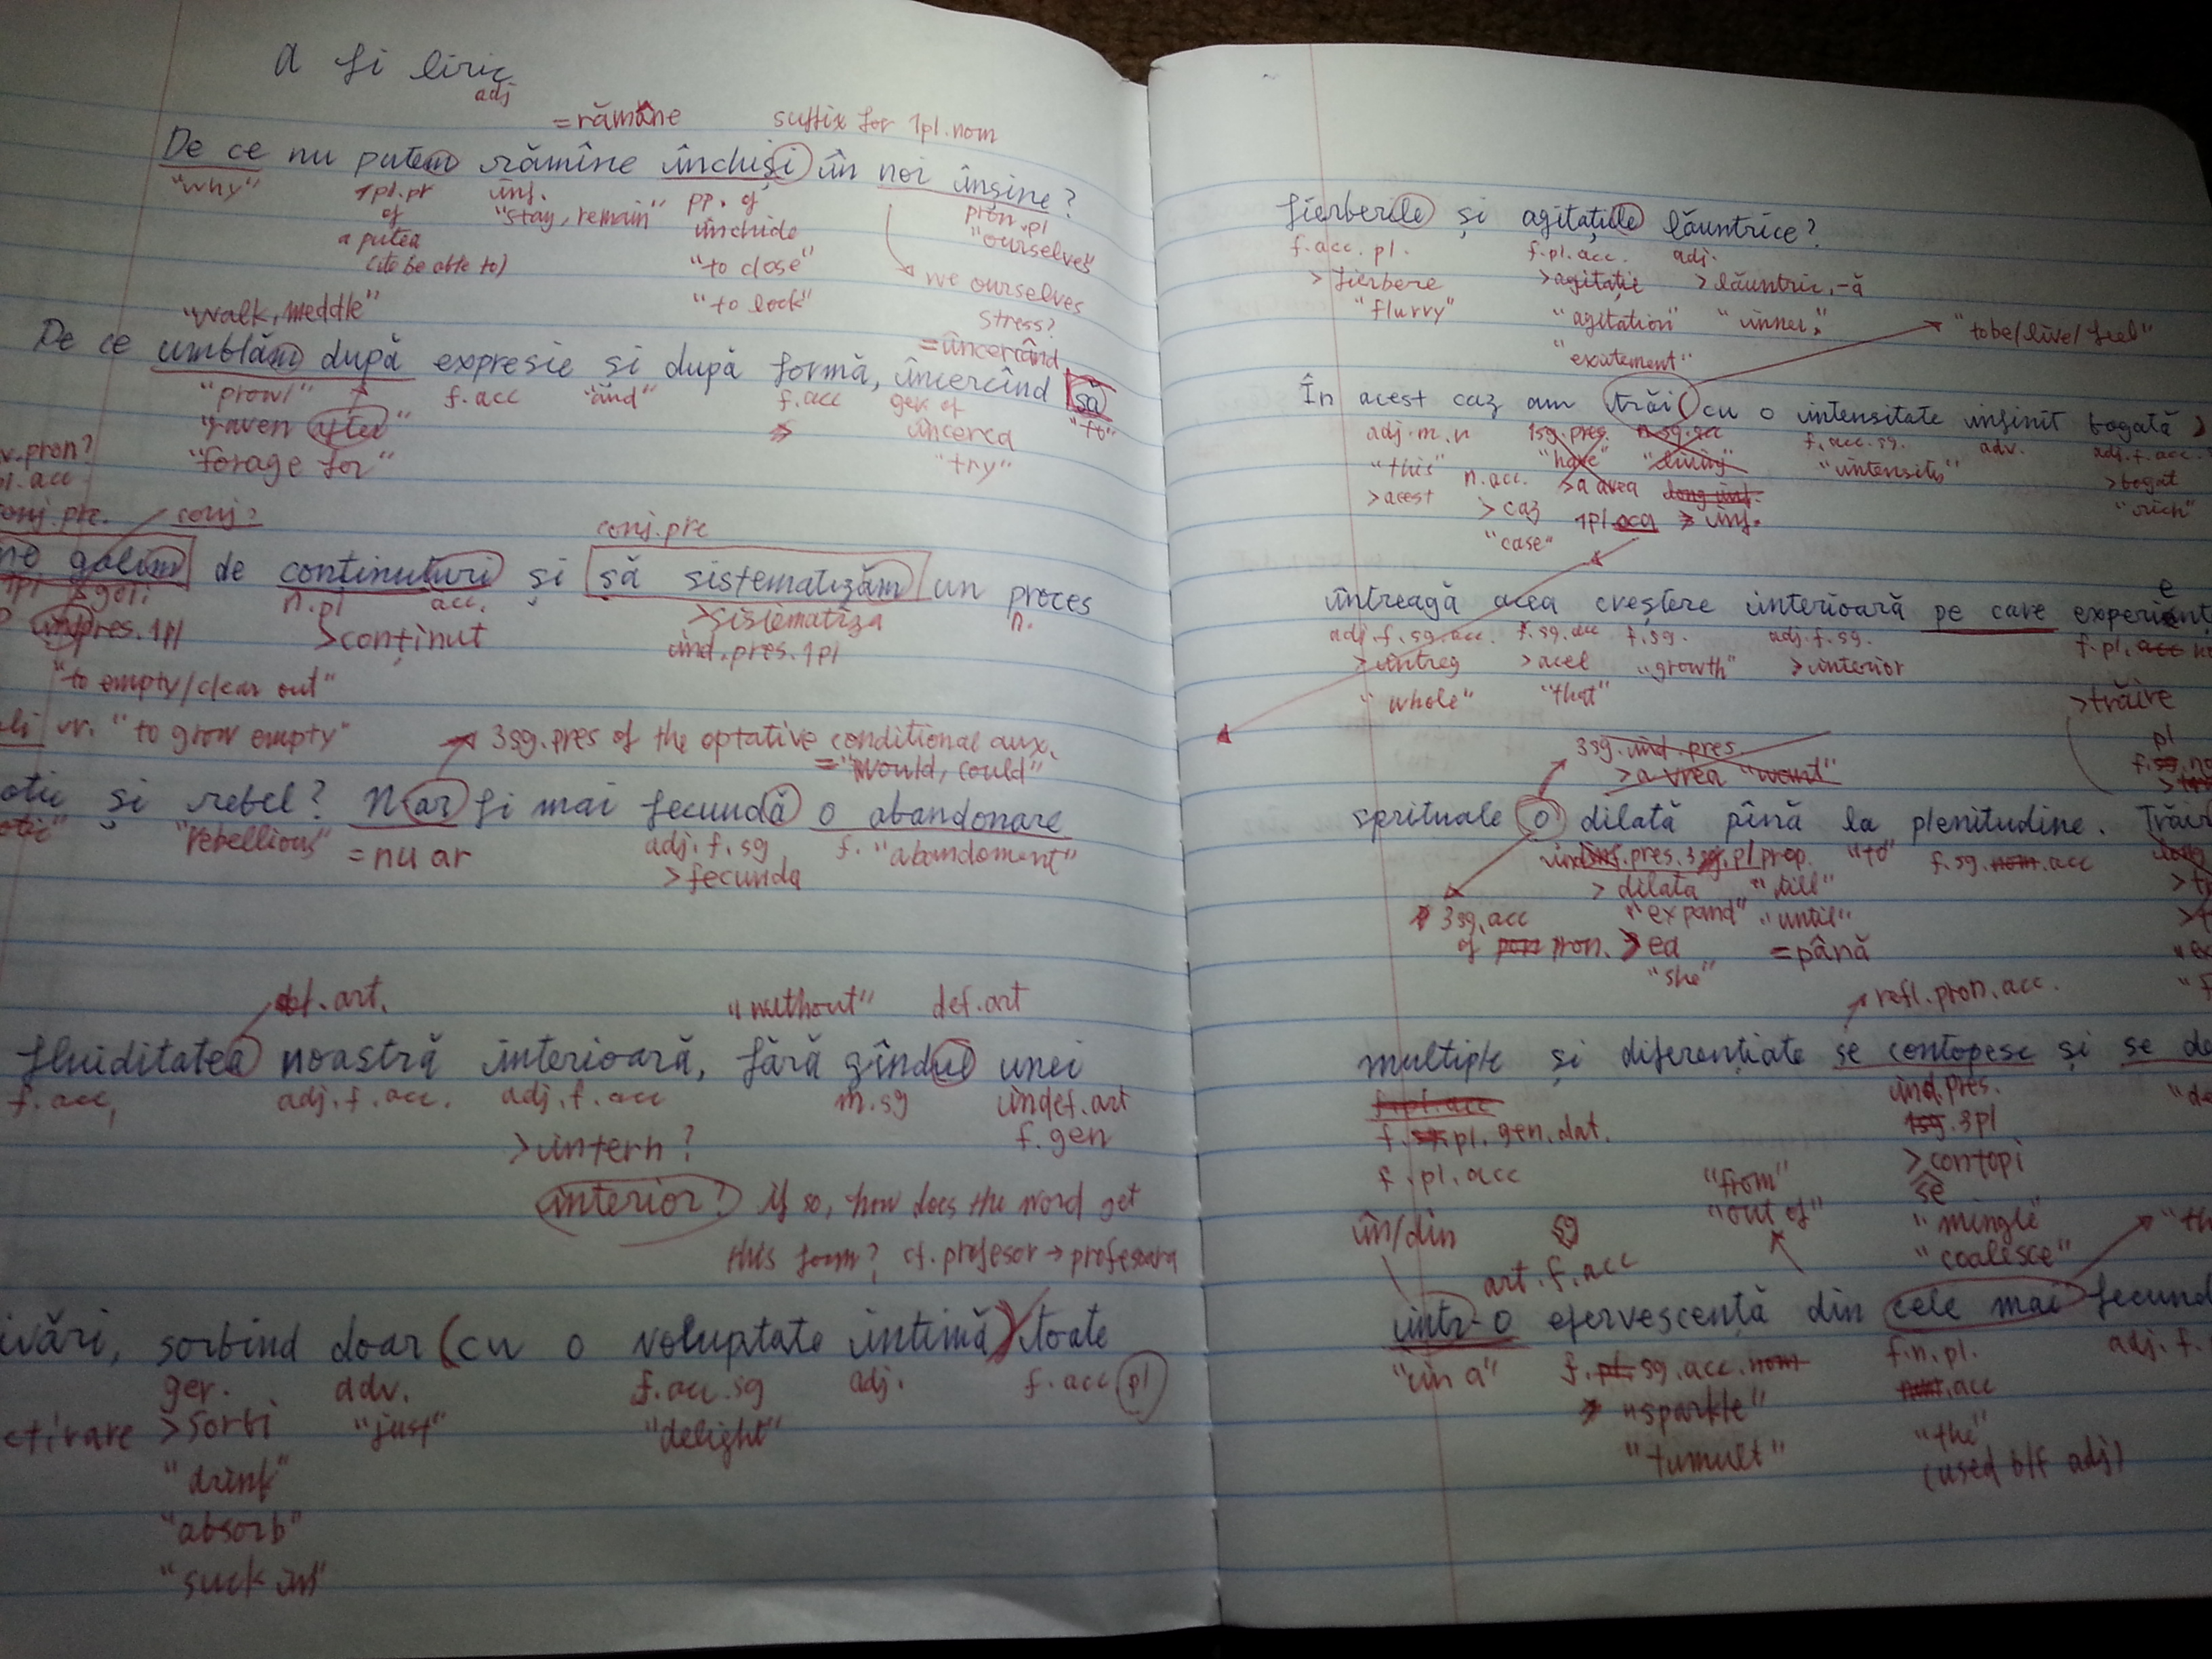 a fi liric
adj
=rămâne suffix for 1pl.nom
De ce nu putem rămîne închişi în noi înşine?
"why" 1pl.pr inf. pp. of pron.pl
of "stay, remain" închide "ourselves"
a putea "to close" we ourselves
(to be able to) "to lock" stress?
"walk, meddle" =încercând
De ce umblăm după expresie şi după formă, încercînd să
"prowl" f.acc "and" f.acc ger of "to"
"raven after" încerca
"forage for" "try"
v.pron?
pl.acc
conj.pre. conj? conj.pre
ne golim de conținuturi şi să sistematizăm un proces
n.pl acc. >sistematiza n.
pres.1pl >conținut ind.pres.1pl
"to empty/clear out"
vr. "to grow empty" 3sg.pres of the optative conditional aux.
="would, could"
şi rebel? N-ar fi mai fecundă o abandonare
"rebellious" =nu ar adj.f.sg f. "abandoment"
>fecunda
def.art. "without" def.art
fluiditatea noastră interioară, fără gîndul unei
f.acc, adj.f.acc. adj.f.acc m.sg indef.art
>intern? f.gen
interior? if so, how does the word get
this form? cf. profesor → profesoara
sorbind doar (cu o voluptate intimă) toate
ger. adv. f.acc.sg adj. f.acc pl
>sorbi "just" "delight"
"drink"
"absorb"
"suck in"
fierberile şi agitațiile lăuntrice?
f.acc.pl. f.pl.acc. adj.
>fierbere >agitație >lăuntric,-ă
"flurry" "agitation" "inner" "to be/live/feel"
"excitement"
În acest caz am trăi (cu o intensitate infinit bogată)
adj.m.n 1sg.pres. n.sg.acc f.acc.sg. adv. adj.f.acc.
"this" n.acc. "have" "living" "intensity" >bogat
>acest >caz >a avea long inf. "rich"
"case" 1pl.aca > inf.
întreagă acea creştere interioară pe care
adj.f.sg.acc. f.sg.acc f.sg. adj.f.sg.
>întreg >acel "growth" >interior
"whole" "that" >trăire
3sg.ind.pres.
>a vrea "want"
sprituale o dilată pînă la plenitudine.
pres.3sg.pl prep. "to" f.sg.nom.acc
> dilata "till"
3sg.acc "expand" "until"
of pron. >ea =până
"she"
refl.pron.acc.
multiple şi diferențiate se contopesc şi se
f.pl.acc ind.pres.
f.pl.gen.dat. 1sg.3pl
f.pl.acc "from" >contopi
în/din sg "out of" se
art.f.acc "mingle"
"coalesce"
într-o efervescență din cele mai
"in a" f.pl.sg.acc.nom f.n.pl. adj.f.
"sparkle" nom.acc
"tumult" "the"
(used b/f adj)